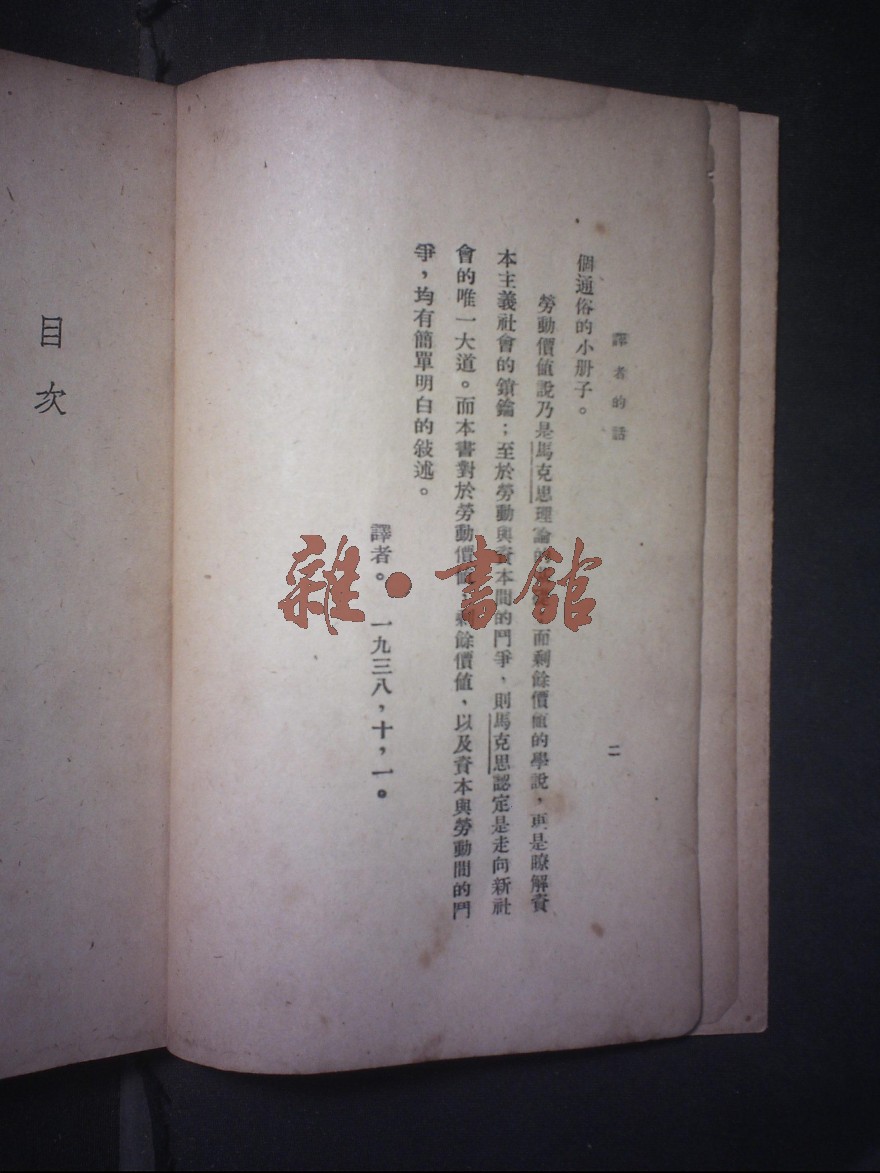 譯者的話
二
個通俗的小册子。
勞動價值說乃是馬克思理論的 而剩餘價值的學說，更是瞭解資
本主義社會的鎖鑰；至於勞動與資本間的鬥爭，則馬克思認定是走向新社
會的唯一大道。而本書對於勞動價值 剩餘價值，以及資本與勞動間的鬥
爭，均有簡單明白的敍述。
譯者。一九三八，十，一。
目次
雜·書館